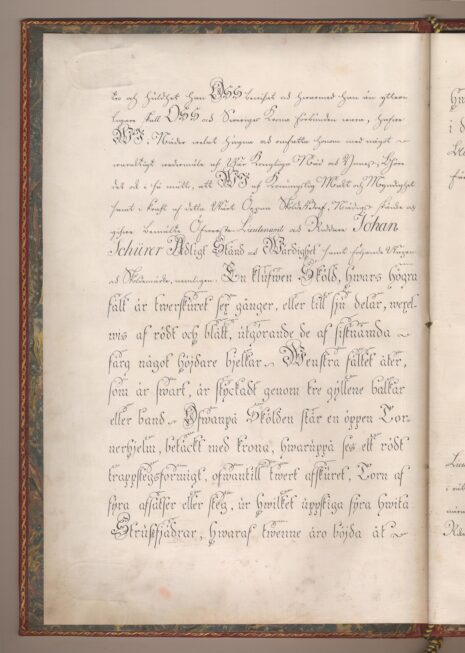 tro och huldhet Han OSS bewisat och hwarmed Han än ytter-
ligare skall OSS och Sweriges Krona förbunden wara, hafwe
WI, i Nåder welat hugna och omfatta honom med något
waraktigt wedermäle af Wår Kongliga Nåd och Ynnest; Göre
det ock i så mått, att WI af Konungslig Makt och Myndighet
samt i kraft af detta Wårt Öppna Sköldebref, Nådigst skänke och
gifwe bemälte Öfwerste-Lieutenant och Riddare Johan
Schürer Adligt Stånd och Wärdighet samt följande Wapen
och Sköldemärke, nemligen: En klufwen Sköld, hwars högra
fält är twerskuret sex gånger, eller till sju delar, wexel-
wis af rödt och blått, utgörande de af sistnämda
färg något höjdare bjelkar. Wenstra fältet åter,
som är swart, är styckadt genom tre gyllene balkar
eller band. Ofwanpå Skölden står en öppen Tor-
nerhjelm, betäckt med krona, hwaruppå ses ett rödt
trappstegsformigt, ofwantill twert afskuret, Torn af
fyra afsatser eller steg, ur hwilket uppstiga fyra hwita
Strutsfjädrar, hwaraf twenne äro böjda åt